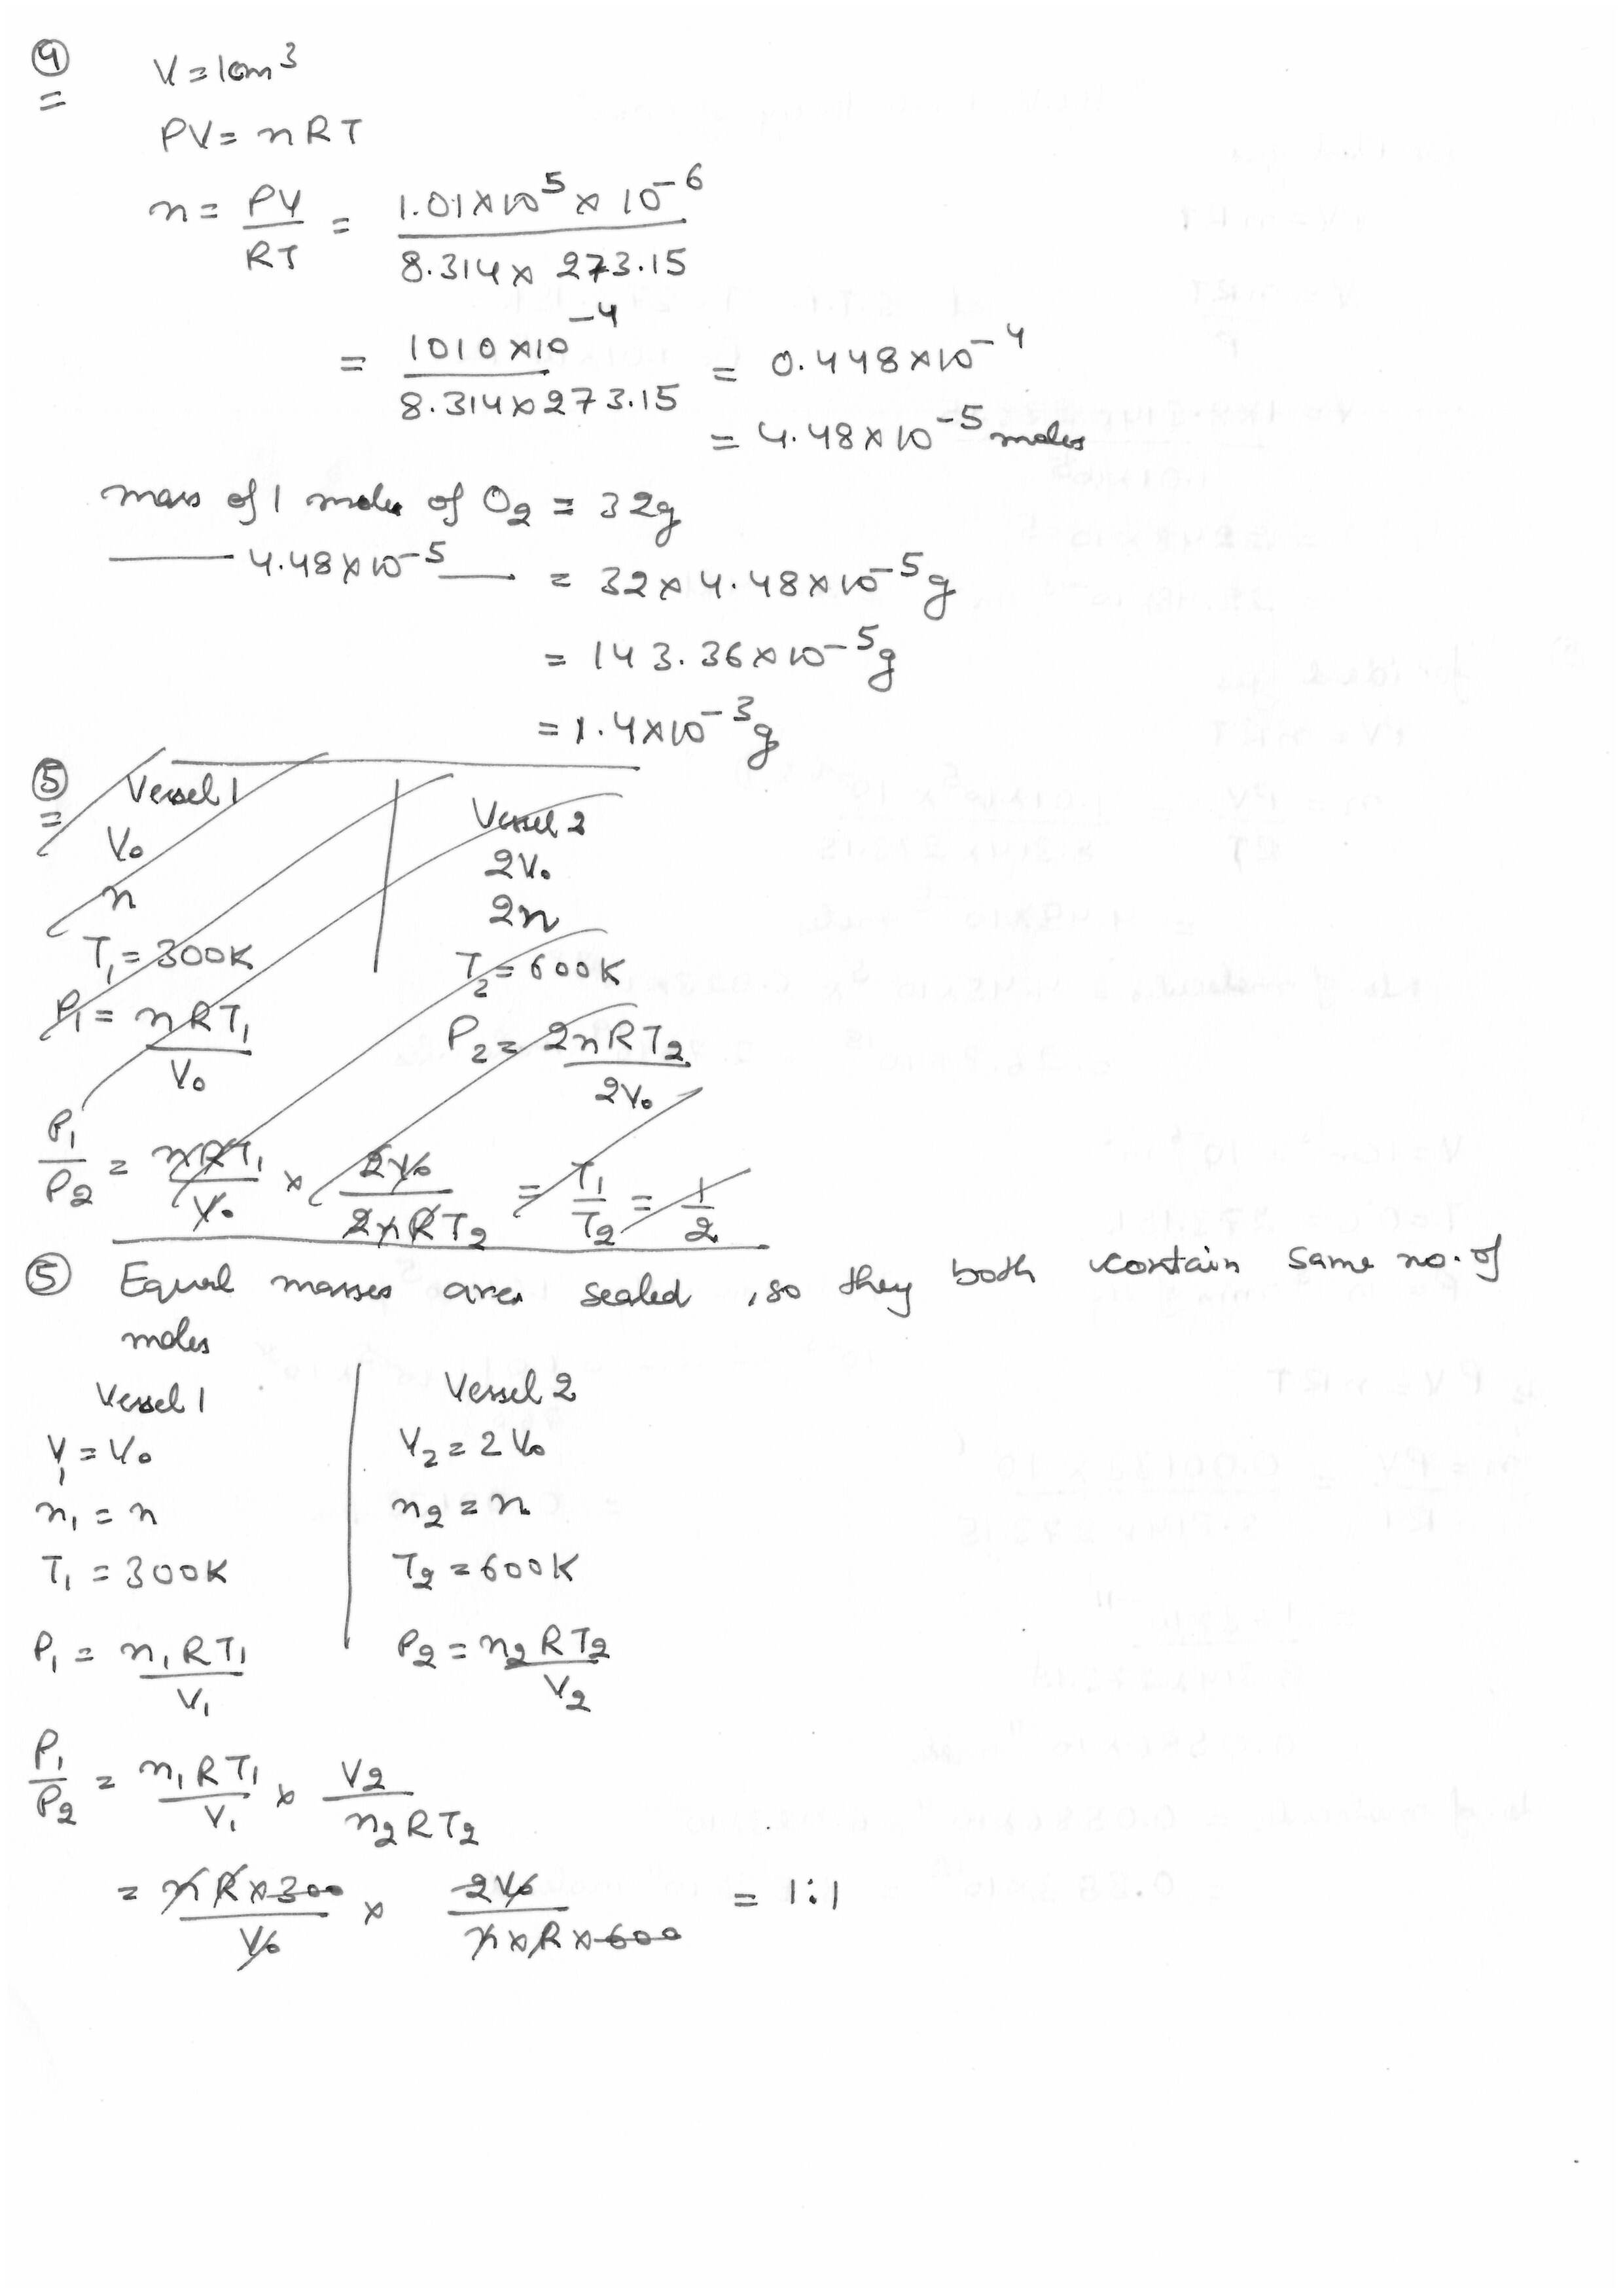 ④ V = 1cm³
PV = nRT
n = PV/RT = 1.01×10⁵ × 10⁻⁶ / 8.314 × 273.15
= 1010×10⁻⁴ / 8.314×273.15 = 0.448×10⁻⁴
= 4.48×10⁻⁵ moles
mass of 1 moles of O₂ = 32g
—— 4.48×10⁻⁵ —— = 32×4.48×10⁻⁵g
= 143.36×10⁻⁵g
= 1.4×10⁻³g
⑤ Vessel 1 | Vessel 2
V₀ | 2V₀
n | 2n
T₁ = 300K | T₂ = 600K
P₁ = nRT₁/V₀ | P₂ = 2nRT₂/2V₀
P₁/P₂ = nRT₁/V₀ × 2V₀/2nRT₂ = T₁/T₂ = 1/2
⑤ Equal masses are sealed, so they both contain same no. of
moles
Vessel 1 | Vessel 2
V₁ = V₀ | V₂ = 2V₀
n₁ = n | n₂ = n
T₁ = 300K | T₂ = 600K
P₁ = n₁RT₁/V₁ | P₂ = n₂RT₂/V₂
P₁/P₂ = n₁RT₁/V₁ × V₂/n₂RT₂
= nR×300/V₀ × 2V₀/n×R×600 = 1:1